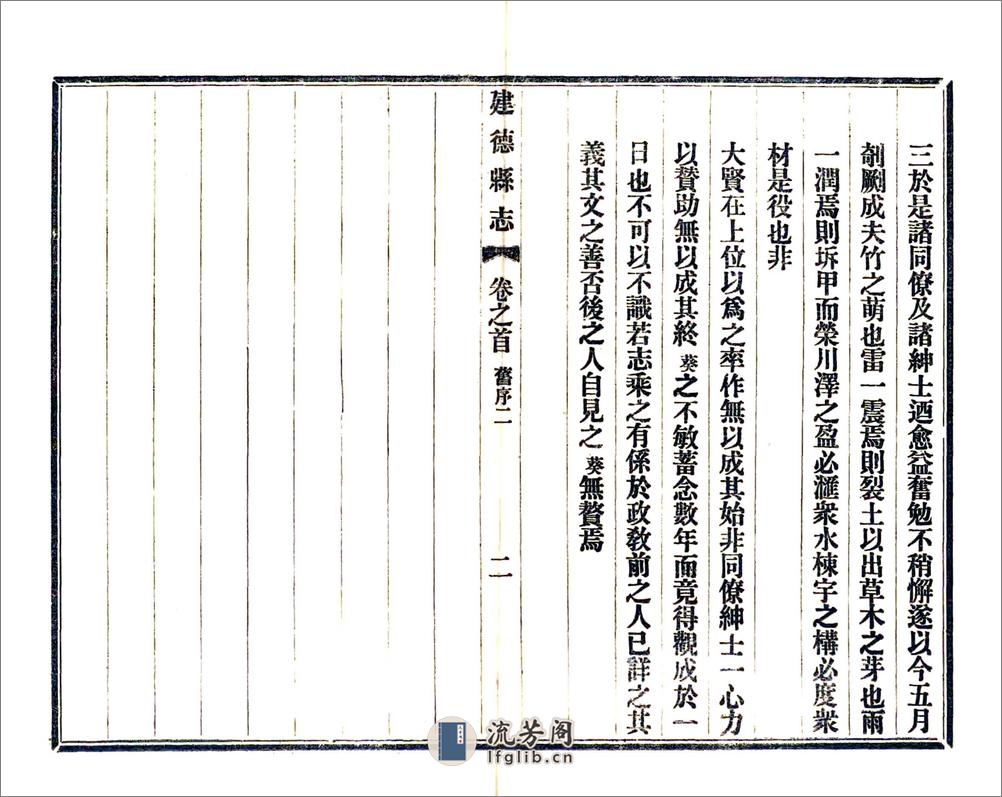 三於是諸同僚及諸紳士迺愈益奮勉不稍懈遂以今五月
剞劂成夫竹之萌也雷一震焉則裂土以出草木之芽也雨
一潤焉則坼甲而榮川澤之盈必滙衆水棟宇之構必度衆
材是役也非
大賢在上位以爲之率作無以成其始非同僚紳士一心力
以贊助無以成其終葵之不敏蓄念數年而竟得觀成於一
日也不可以不識若志乘之有係於政敎前之人已詳之其
義其文之善否後之人自見之葵無贅焉
建德縣志 卷之首 舊序二 二
流芳阁
lfglib.cn